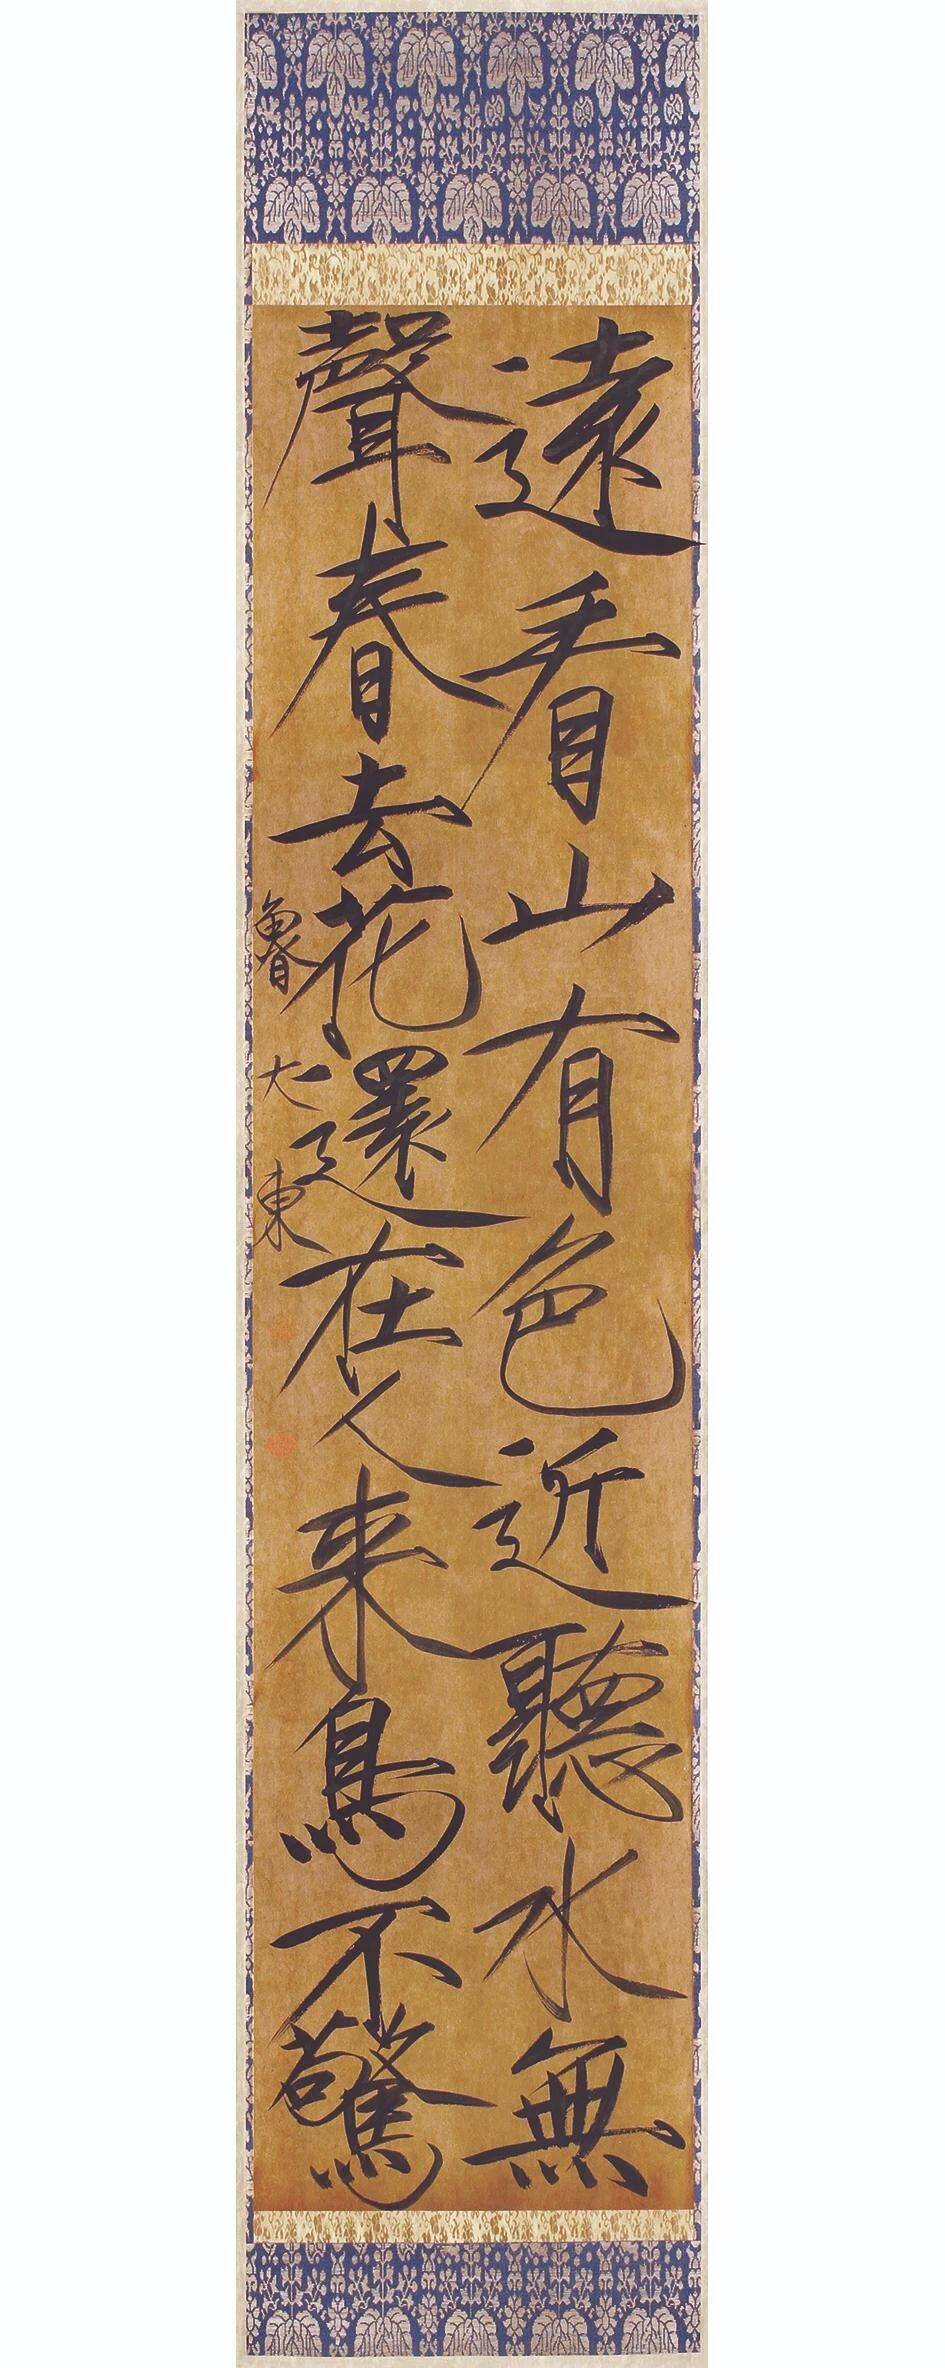 遠看山有色近聽水無
聲春去花還在人来鳥不驚
魯大東